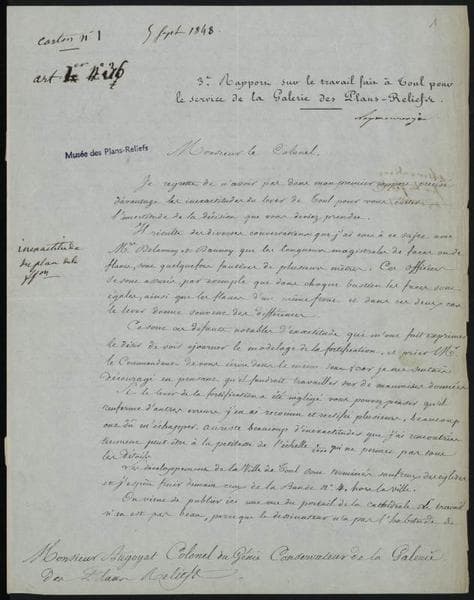 1
carton n° 1
5 Sept. 1848.
art
3e. Rapport sur le travail fait à Toul pour
le service de la Galerie des Plans-Reliefs.
Musée des Plans-Reliefs
Monsieur le Colonel.
Je regrette de n'avoir pas dans mon premier rapport précisé
davantage les inexactitudes du lever de Toul pour vous éviter
l'incertitude de la décision que vous deviez prendre.
Il résulte des diverses conversations que j'ai eues à ce sujet avec
Mrs. Delaunay et que les longueurs magistrales de faces ou de
flancs, sont quelquefois fautives de plusieurs mètres. Ces officiers
se sont assurés, par exemple que dans chaque bastion les faces sont
égales, ainsi que les flancs d'un même front et dans ces deux cas
le lever donne souvent des différences.
inexactitude
du plan de la
Ce sont ces défauts notables d'exactitude qui m'ont fait exprimer
le désir de voir ajourner le modelage de la fortification, et prier Mr.
le Commandant de vous écrire dans le même sens, car je me sentais
découragé en pensant qu'il faudrait travailler sur de mauvaises données
Si le lever de la fortification a été négligé vous pouvez penser qu'il
renferme d'autres erreurs j'en ai reconnu et rectifié plusieurs, beaucoup
ont dû m'échapper. au reste beaucoup d'inexactitudes que j'ai rencontrées
tiennent peut être à la petitesse de l'échelle qui ne permet pas tous
les détails.
Les développements de la Ville de Toul sont terminés sauf ceux des églises
et j'espère finir demain ceux de la Bande n° 4. hors la ville.
On vient de publier ici une vue du portail de la cathédrale. Le travail
n'en est pas beau, parce que le dessinateur n'a pas l'habitude de
Monsieur Augoyat Colonel du Génie Conservateur de la Galerie
des Plans Reliefs.